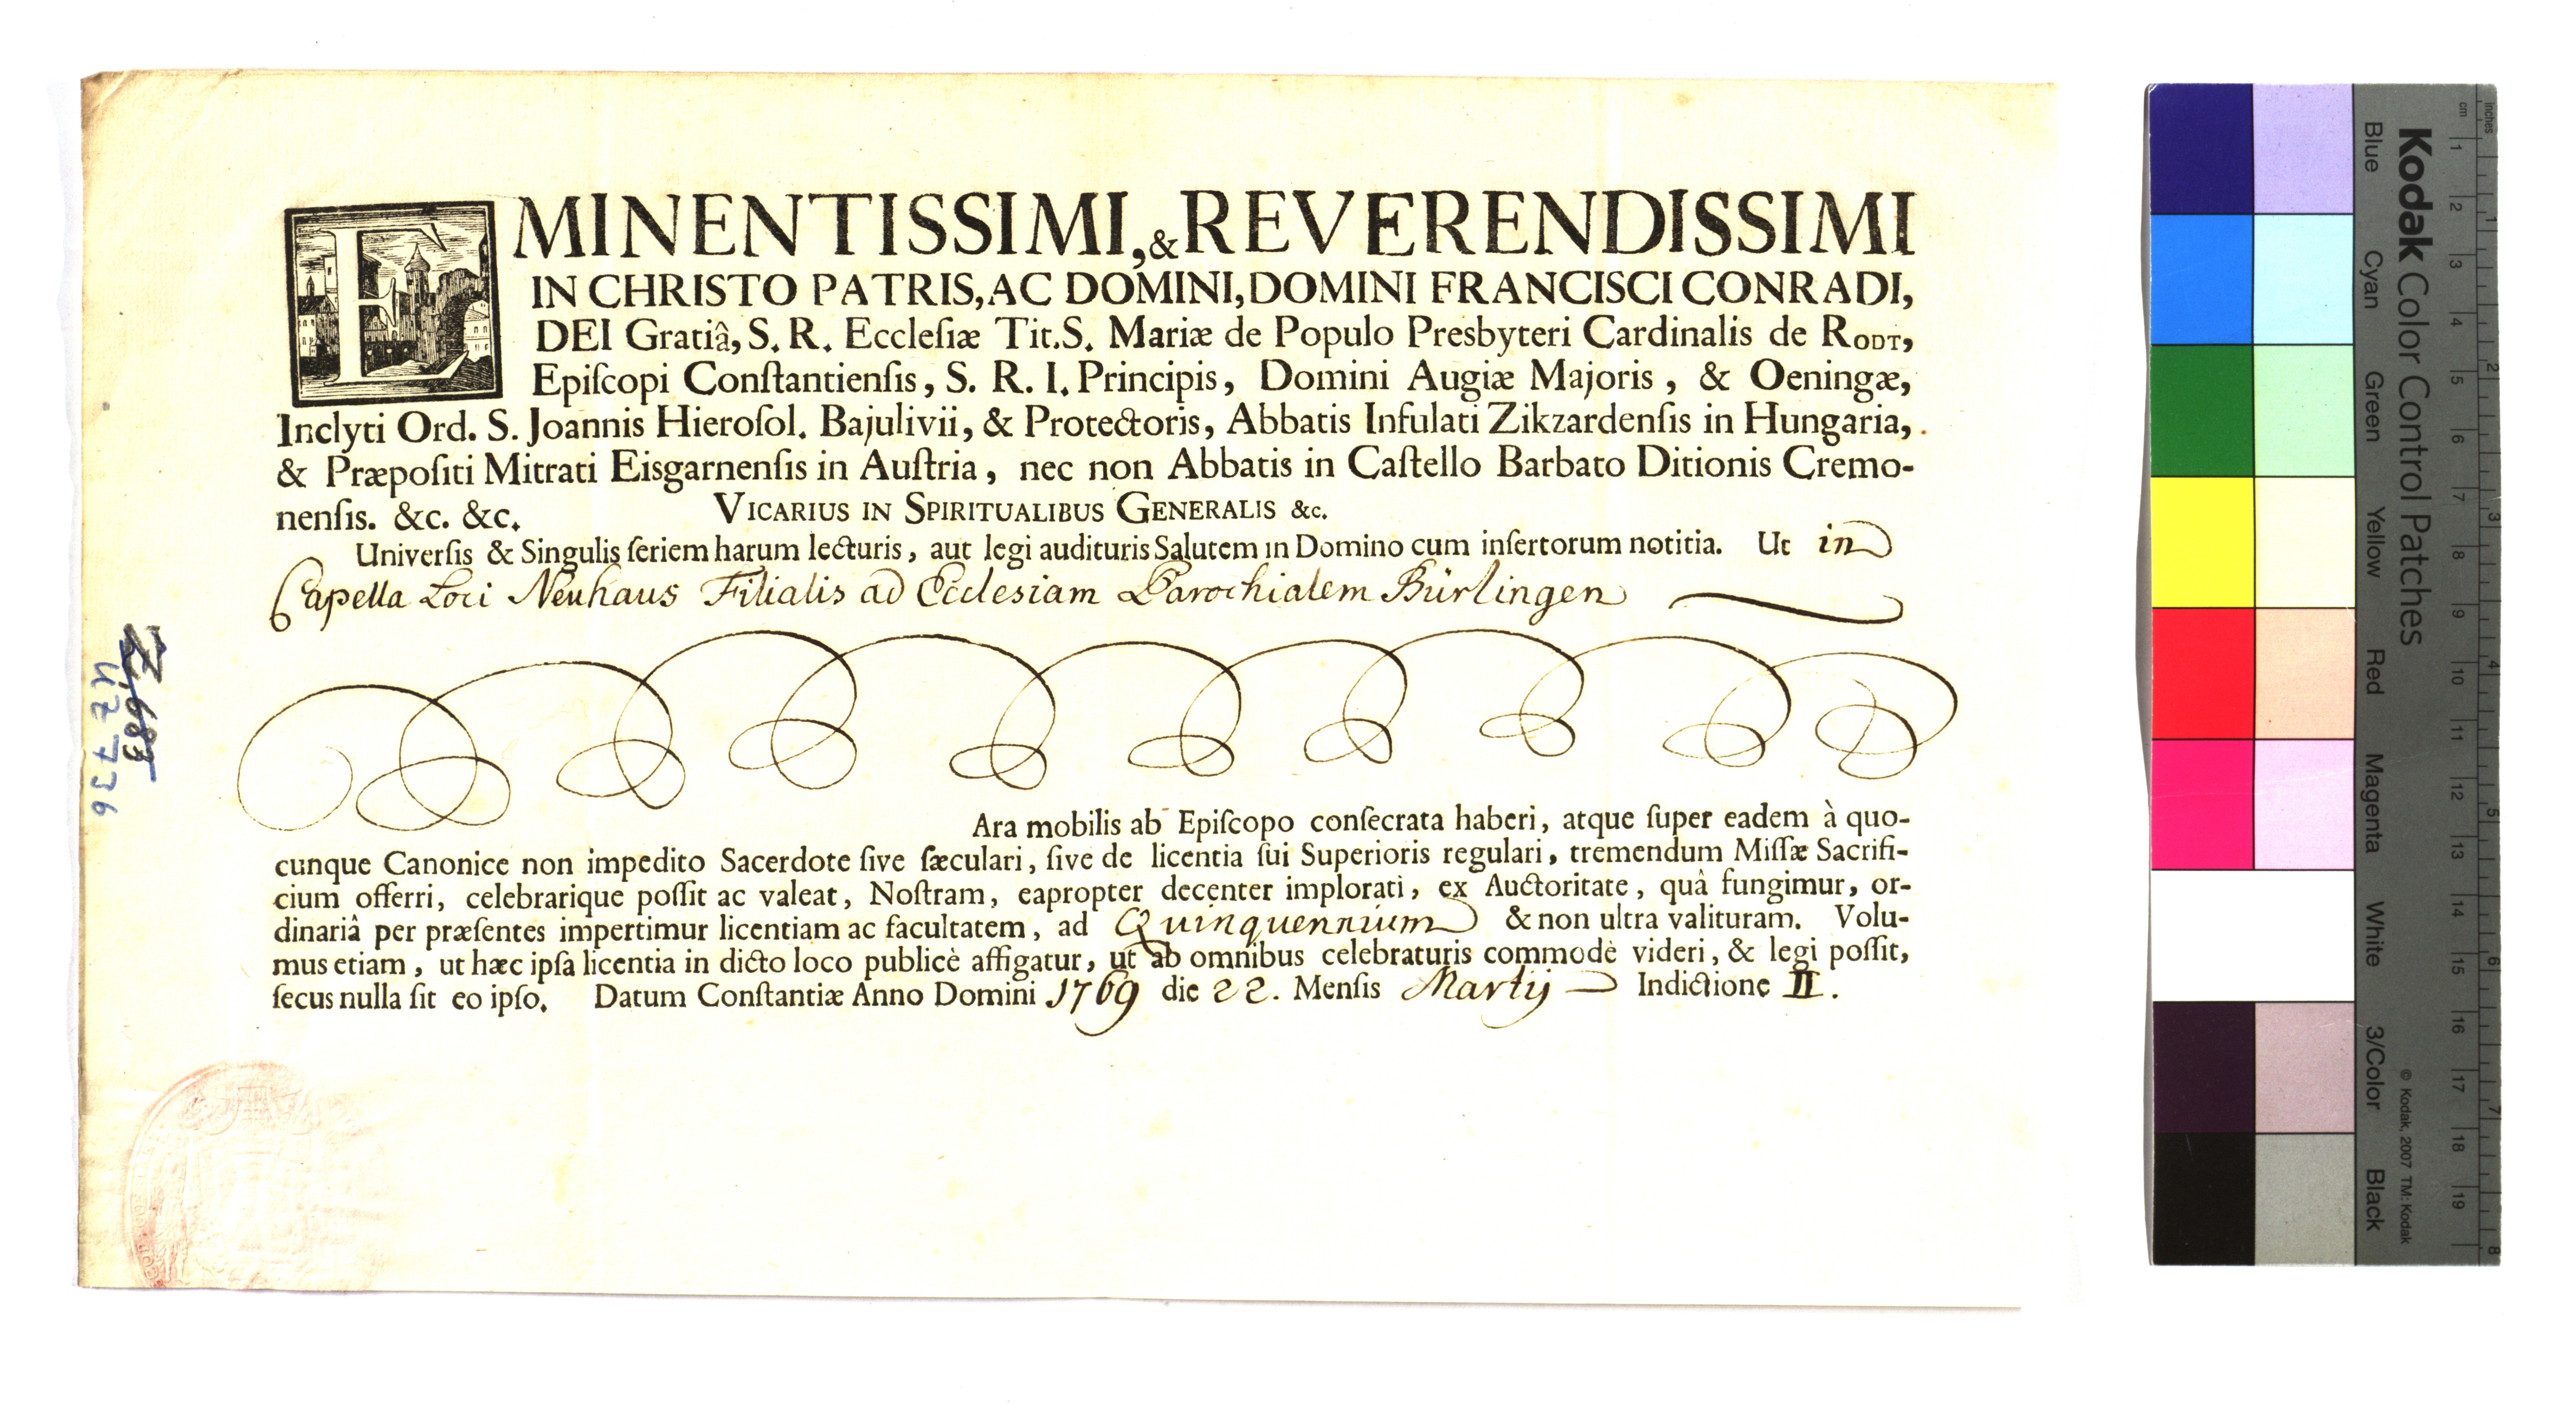 EMINENTISSIMI, & REVERENDISSIMI
IN CHRISTO PATRIS, AC DOMINI, DOMINI FRANCISCI CONRADI,
DEI Gratiâ, S. R. Eccleſiæ Tit. S. Mariæ de Populo Presbyteri Cardinalis de RODT,
Epiſcopi Conſtantienſis, S. R. I. Principis, Domini Augiæ Majoris, & Oeningæ,
Inclyti Ord. S. Joannis Hieroſol. Bajulivii, & Protectoris, Abbatis Infulati Zikzardenſis in Hungaria,
& Præpoſiti Mitrati Eisgarnenſis in Auſtria, nec non Abbatis in Caſtello Barbato Ditionis Cremo-
nenſis. &c. &c. VICARIUS IN SPIRITUALIBUS GENERALIS &c.
Univerſis & Singulis ſeriem harum lecturis, aut legi audituris Salutem in Domino cum inſertorum notitia. Ut in
Capella Loci Neuhaus Filialis ad Ecclesiam Parochialem Bürlingen
Ara mobilis ab Epiſcopo conſecrata haberi, atque ſuper eadem à quo-
cunque Canonice non impedito Sacerdote ſive ſæculari, ſive de licentia ſui Superioris regulari, tremendum Miſſæ Sacrifi-
cium offerri, celebrarique poſſit ac valeat, Noſtram, eapropter decenter implorati, ex Auctoritate, quâ fungimur, or-
dinariâ per præſentes impertimur licentiam ac facultatem, ad Quinquennium & non ultra valituram. Volu-
mus etiam, ut hæc ipſa licentia in dicto loco publicè affigatur, ut ab omnibus celebraturis commodè videri, & legi poſſit,
ſecus nulla ſit eo ipſo. Datum Conſtantiæ Anno Domini 1769 die 22. Menſis Martij Indictione II.
Z,683
UZ 736
Kodak Color Control Patches
Blue Cyan Green Yellow Red Magenta White 3/Color Black
© Kodak, 2007 TM: Kodak
inches 1 2 3 4 5 6 7 8
cm 1 2 3 4 5 6 7 8 9 10 11 12 13 14 15 16 17 18 19